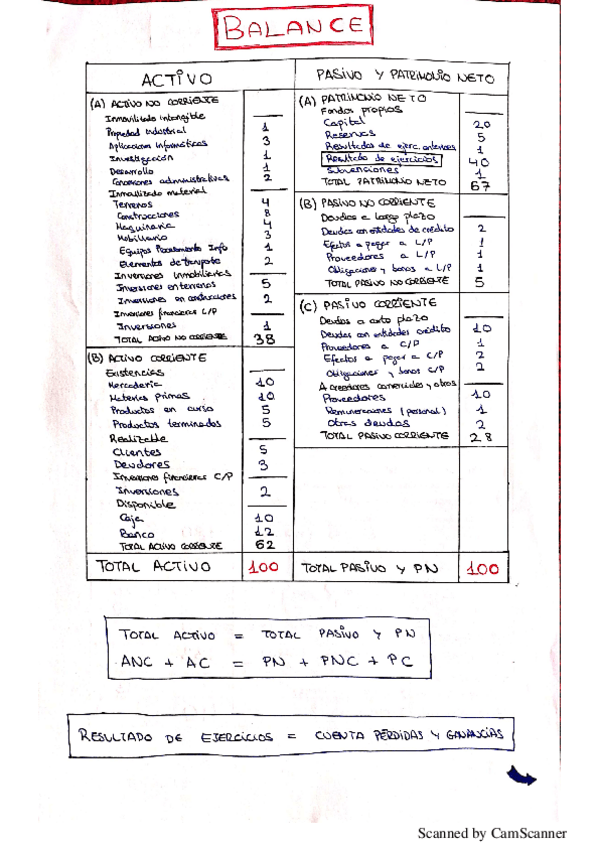 BALANCE
ACTIVO
(A) ACTIVO NO CORRIENTE
Inmovilizado intangible
Propiedad industrial 1
Aplicaciones informáticas 3
Investigación 1
Desarrollo 1
Concesiones administrativas 2
Inmovilizado material
Terrenos 4
Construcciones 8
Maquinaria 4
Mobiliario 3
Equipos Procesamiento Info 1
Elementos de transporte 2
Inversiones Inmobiliarias
Inversiones en terrenos 5
Inversiones en construcciones 2
Inversiones financieras L/P
Inversiones 1
TOTAL ACTIVO NO CORRIENTE 38
(B) ACTIVO CORRIENTE
Existencias
Mercadería 10
Materias primas 10
Productos en curso 5
Productos terminados 5
Realizable
Clientes 5
Deudores 3
Inversiones financieras C/P
Inversiones 2
Disponible
Caja 10
Banco 12
TOTAL ACTIVO CORRIENTE 62
TOTAL ACTIVO 100
PASIVO Y PATRIMONIO NETO
(A) PATRIMONIO NETO
Fondos propios
Capital 20
Reservas 5
Resultados de ejerc. anteriores 1
Resultado de ejercicios 40
Subvenciones 1
TOTAL PATRIMONIO NETO 67
(B) PASIVO NO CORRIENTE
Deudas a largo plazo
Deudas con entidades de crédito 2
Efectos a pagar a L/P 1
Proveedores a L/P 1
Obligaciones y bonos a L/P 1
TOTAL PASIVO NO CORRIENTE 5
(C) PASIVO CORRIENTE
Deudas a corto plazo
Deudas con entidades crédito 10
Proveedores a C/P 1
Efectos a pagar a C/P 2
Obligaciones y bonos C/P 2
Acreedores comerciales y otros
Proveedores 10
Remuneraciones (personal) 1
Otras deudas 2
TOTAL PASIVO CORRIENTE 28
TOTAL PASIVO Y PN 100
TOTAL ACTIVO = TOTAL PASIVO Y PN
ANC + AC = PN + PNC + PC
RESULTADO DE EJERCICIOS = CUENTA PÉRDIDAS Y GANANCIAS
Scanned by CamScanner